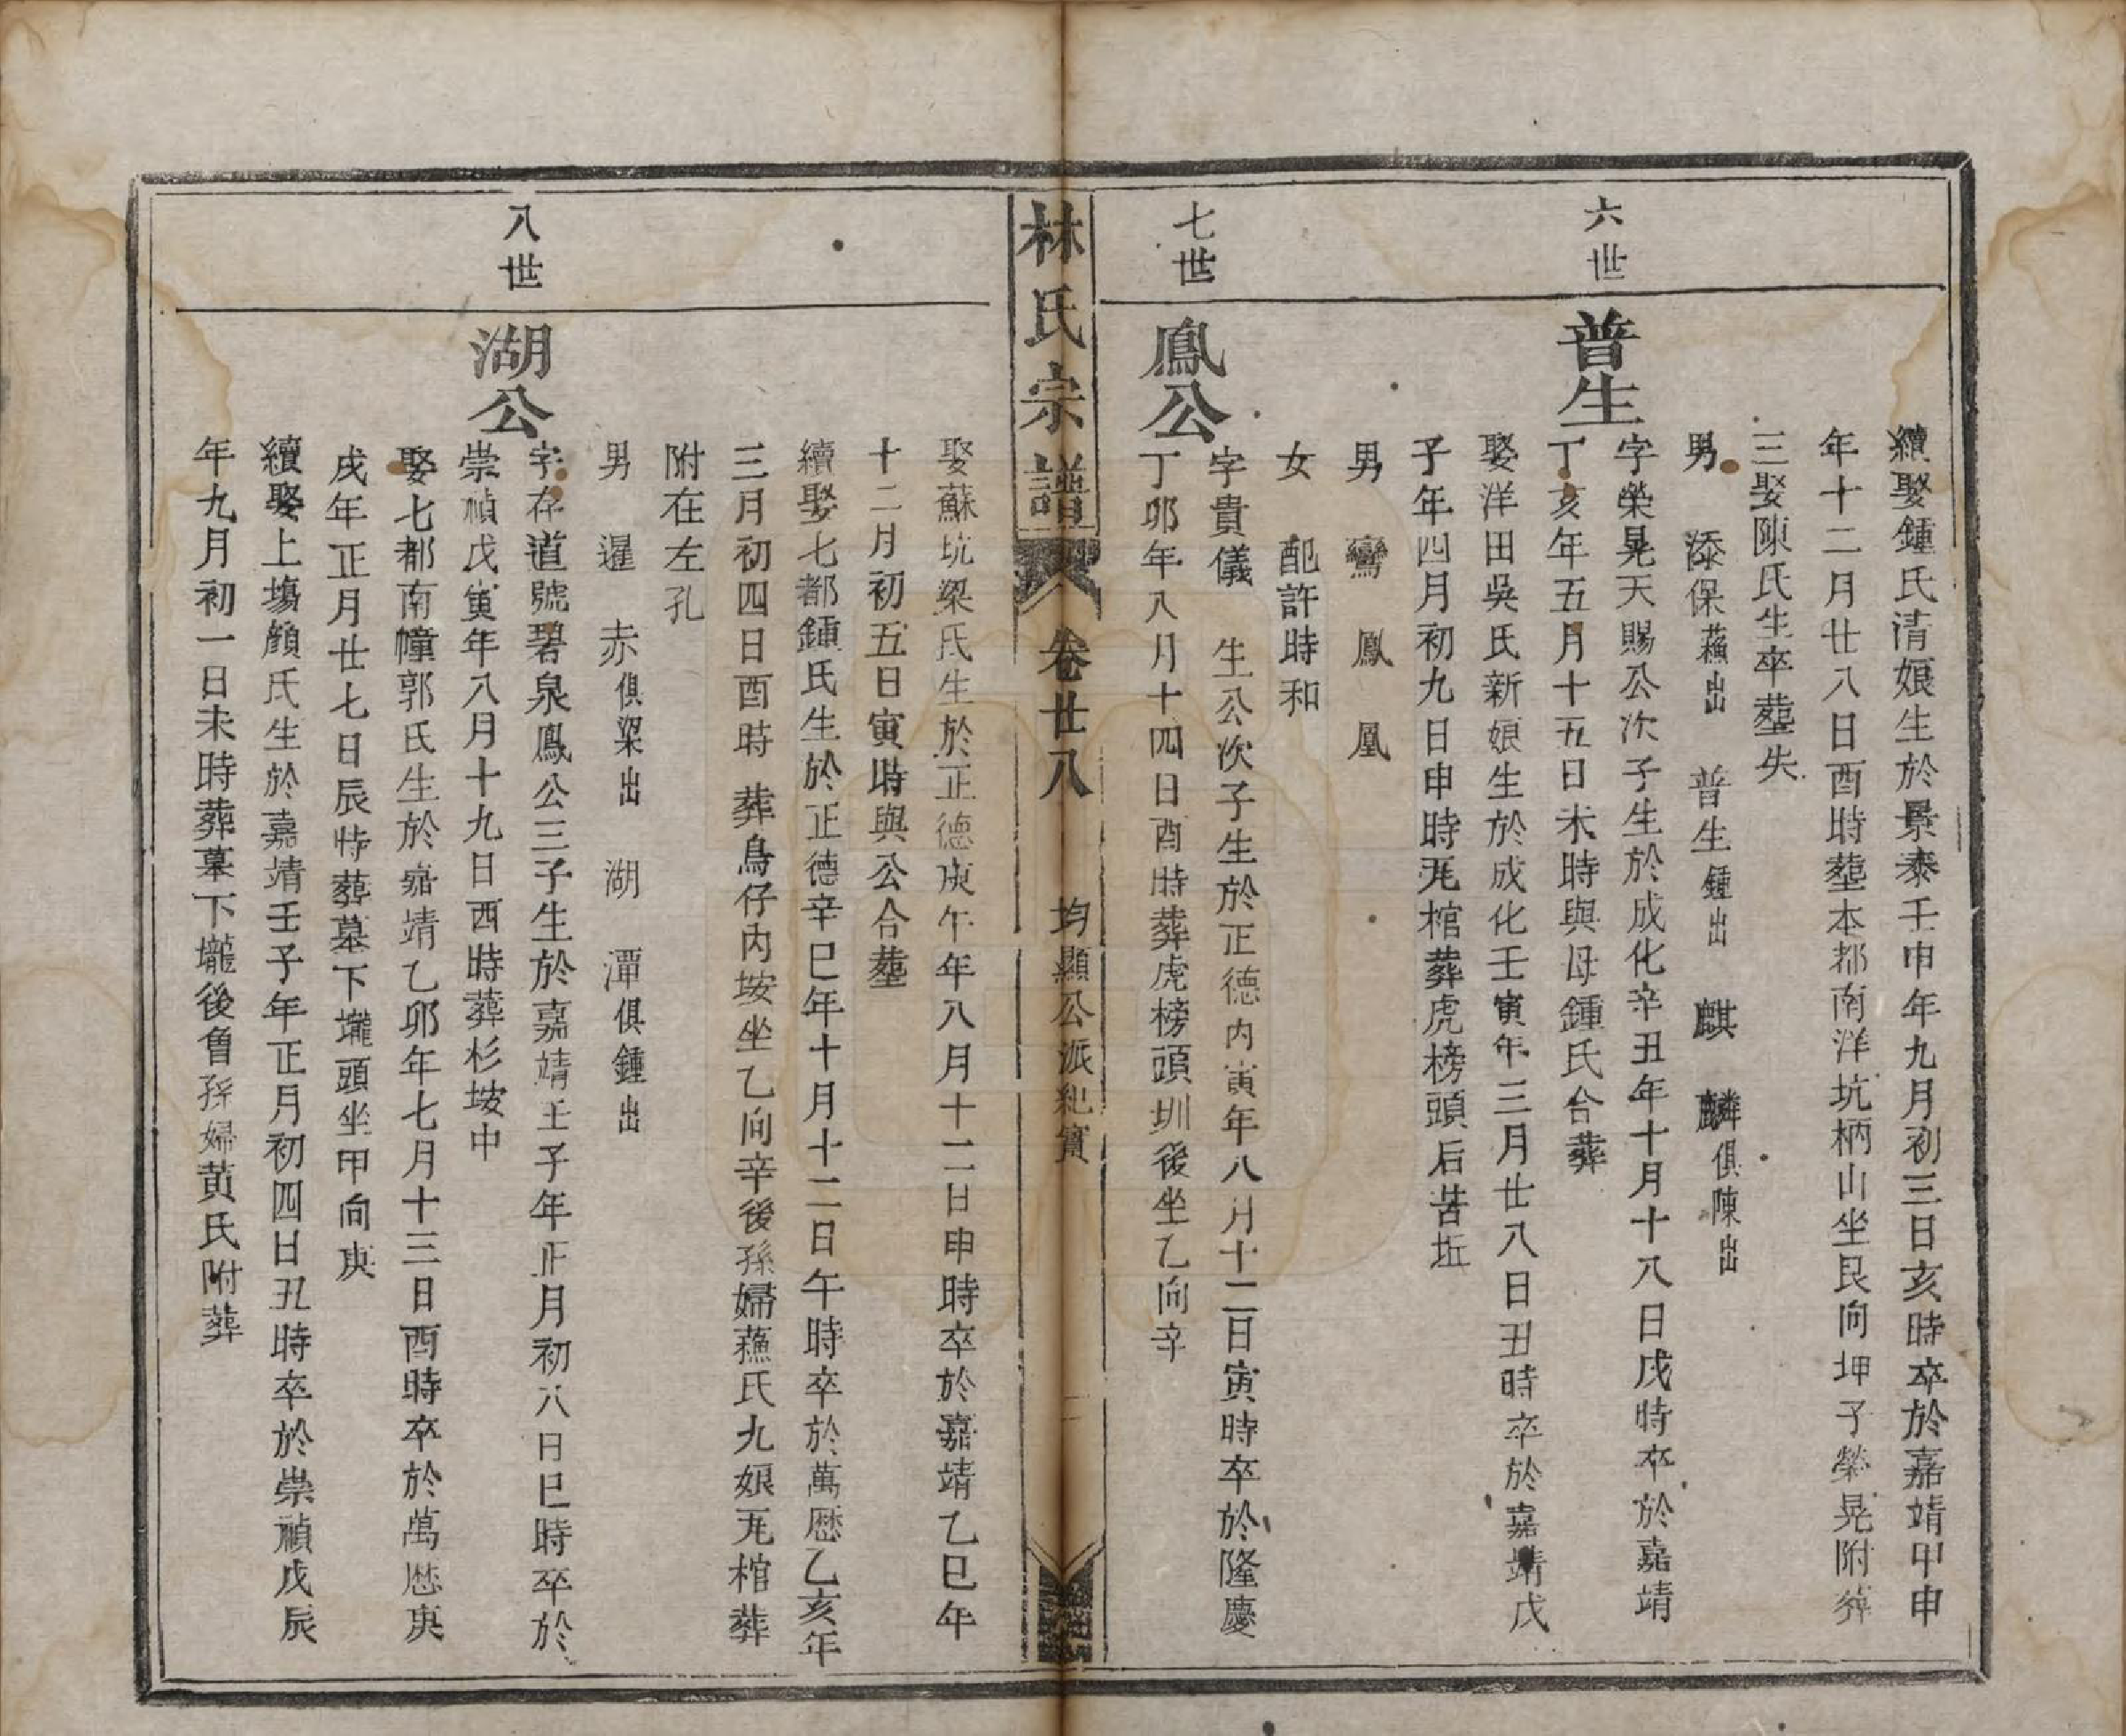 續娶鍾氏清娘生於景泰壬申年九月初三日亥時卒於嘉靖甲申
年十二月廿八日酉時塟本都南洋坑柄山坐艮向坤子榮晃附葬
三娶陳氏生卒塟失
男　添保蘓出　普生鍾出　麒　麟俱陳出
六世
普生
字榮晃天賜公次子生於成化辛丑年十月十八日戌時卒於嘉靖
丁亥年五月十五日未時與母鍾氏合葬
娶洋田吳氏新娘生於成化壬寅年三月廿八日丑時卒於嘉靖戊
子年四月初九日申時旡棺葬虎榜頭后苦坵
男　鸞　鳳　凰
女　配許時和
七世
鳳公
字貴儀　生公次子生於正德丙寅年八月十二日寅時卒於隆慶
丁卯年八月十四日酉時葬虎榜頭圳後坐乙向辛
林氏宗譜　卷廿八　均顯公派紀實　二
娶蘇坑梁氏生於正德庚午年八月十二日申時卒於嘉靖乙巳年
十二月初五日寅時與公合塟
續娶七都鍾氏生於正德辛巳年十月十二日午時卒於萬厯乙亥年
三月初四日酉時葬鳥仔內垵坐乙向辛後孫婦蘓氏九娘旡棺葬
附在左孔
男　暹　赤俱梁出　湖　潭俱鍾出
八世
湖公
字存道號碧泉鳳公三子生於嘉靖壬子年正月初八日巳時卒於
崇禎戊寅年八月十九日酉時葬杉坡中
娶七都南幢郭氏生於嘉靖乙卯年七月十三日酉時卒於萬厯庚
戌年正月廿七日辰時葬墓下壠頭坐甲向庚
續娶上塲顏氏生於嘉靖壬子年正月初四日丑時卒於崇禎戊辰
年九月初一日未時葬墓下壠後曾孫婦黃氏附葬